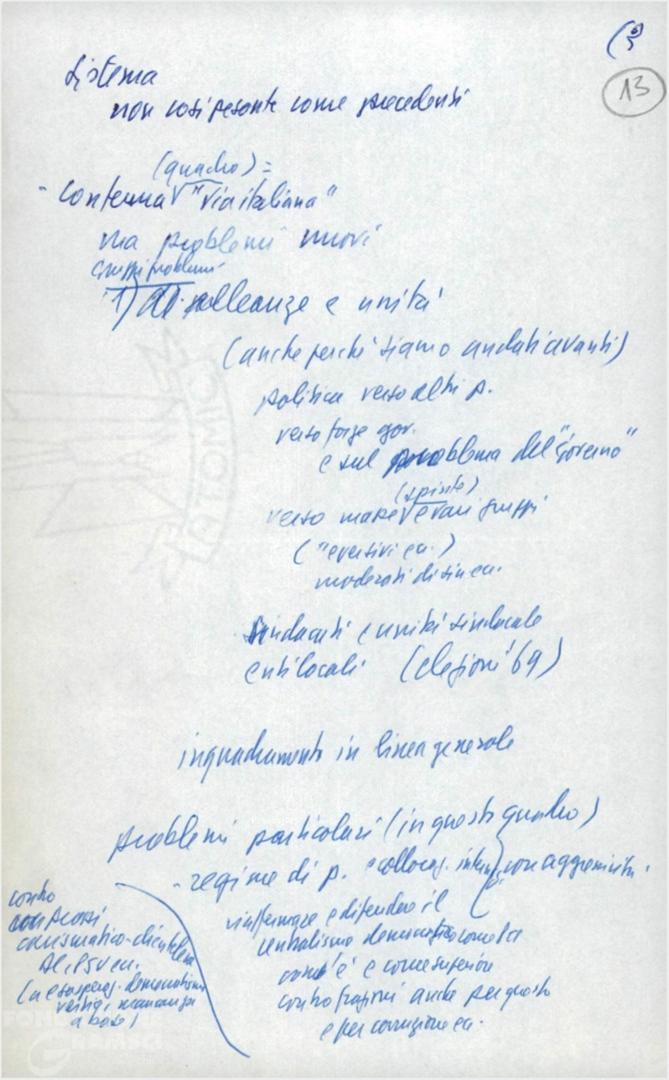 (3
13
Sistema
non così pesante come precedenti
(quadro) =
- Conferma √ "via italiana"
ma problemi nuovi
gruppi problemi
1) alleanze e unità
(anche perché siamo andati avanti)
politica verso altri p.
verso forze gov.
e sul problema del "Governo"
(spinte)
verso masse √ e vari gruppi
("eversivi ecc.)
moderati di sin ecc.
sindacati e unità sindacale
enti locali (elezioni '69)
inquadramento in linea generale
problemi particolari (in questo quadro)
- regime di p. e colloc. intern. con
riaffermare e difendere il
centralismo democratico come
com'è e come superiore
contro frazioni anche per questo
e per corruzione ecc.
contro
carismatico-clientela
ecc.
a base)
FOND
GRAMSCI